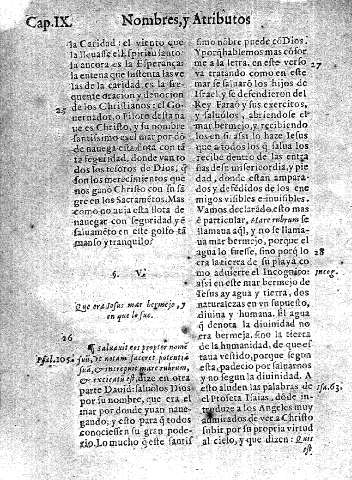 Cap.IX. Nombres, y Atributos
la Caridad: el viento que
la lleuasse el Espiritu santo
la ancora es la Esperança:
la entena que sustenta las ve
las de la caridad es la fre-
quente oracion, y deuocion
de los Christianos: el Go-
25
uernador, o Piloto desta na
ue es Christo, y su nombre
santissimo es el mar por dõ
de nauega esta flota con tã
ta seguridad, donde van to
dos los tesoros de Dios, q̃
son los merecimientos que
nos ganò Christo con su sã
gre en los Sacramẽtos. Mas
como no auia esta flota de
nauegar con seguridad y ẽ
saluamẽto en este golfo tã
manso y tranquilo?
§. V.
Que era Iesus mar bermejo, y
en que lo fue.
26
¶ Saluauit eos propter nomẽ
Psal.105. suũ, vt notam faceret potentiã
suã, & increpuit mare rubrum,
& exiccatũ est, dize en otra
parte Dauid: saluòlos Dios
por su nombre, que era el
mar por donde yuan naue
gando, y esto para q̃ todos
conociessen su gran pode-
rio. Lo mucho q̃ este santis
simo nõbre puede cõ Dios.
Y porq̃ hablemos mas cõfor
me a la letra, en este verso
27
va tratando como en este
mar se saluarõ los hijos de
Israel, y se defendieron del
Rey Faraõ y sus exercitos,
y saluòlos, abriendose el
mar bermejo, y recibiendo
los en si: assi lo haze Iesus
que a todos los q̃ salua los
recibe dentro de las entra
ñas de su misericordia, y pie
dad, donde estan ampara-
dos y defẽdidos de los ene
migos visibles e inuisibles.
Vamos declarãdo esto mas
ẽ particular, Mare rubrum se
llama aqui, y no se llama-
ua mar bermejo, porque el
agua lo fuesse, sino porq̃ lo
28
era la tierra de su playa co
mo aduierte el Incognito: Incog.
assi en este mar bermejo de
Iesus ay agua y tierra, dos
naturalezas en vn supuesto,
diuina y humana. El agua
q̃ denota la diuinidad no
era bermeja, sino la tierra
de la humanidad, de que es
taua vestido, porque segun
esta, padecio por saluarnos
y no segun la diuinidad. A
esto aluden las palabras de
el Profeta Isaias, dõde in- Isa.63.
troduze a los Angeles muy
admirados de ver a Christo
subir por su propria virtud
al cielo, y que dizen: Quis
est